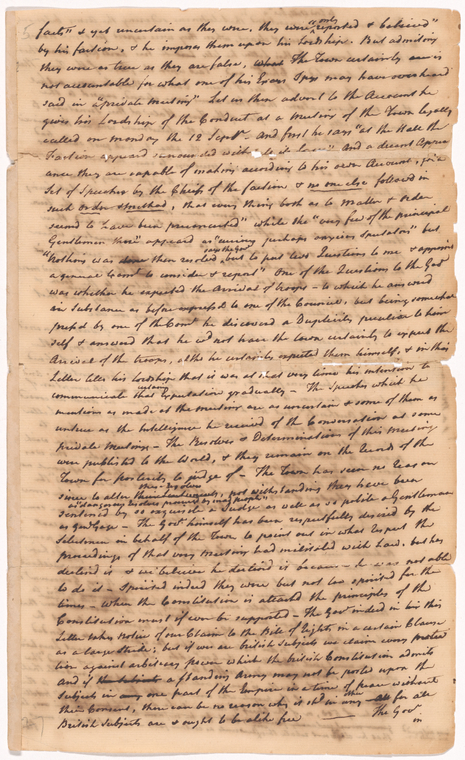 facts" & yet uncertain as they were, they were "only reported & believed"
by his faction, & he imposes them upon his Lordship. But admitting
they were as true as they are false, The Town certainly are is
not accountable for what one of his Excys Spys may have overheard
said in a "private meeting" Let us then advert to the Account he
gives his Lordship of the Conduct at a Meeting of the Town legally
called on monday the 12 Septr. And first he says "at the Hall the
Faction appeard surrounded with its Forces" And a decent Appear
ance they are capable of making according to his own Account, for a
Set of Speeches by the Chiefs of the faction & no one else followed in
such order & method, that every thing both as to Matter & order
seemd to have been preconcerted" while the "very few of the principal
Gentlemen there appeard as "curious perhaps anxious Spectators" but
"Nothing was then resolved, says the Govr but to put two Questions to me & appoint
a general Comte to consider & report" One of the Questions to the Govr
was whether he expected the Arrival of troops — to which he answerd
in Substance as before expressd to one of the Council, but being somewhat
pressd by one of the Come he discoverd a Duplicity peculiar to him
self & answerd that he wd not have the town certainly to expect the
Arrival of the troops, altho he certainly expected them himself, & in this
Letter tells his lordship that it was at that very time his intention to
communicate that certainty Expectation gradually — The Speeches which he
mentions as made at the meeting are as uncertain & some of them as
untrue as the Intelligence he receivd of the Conversation at some
private Meetings — The Resolves & Determinations of this Meeting
were published to the World, & they remain on the Records of the
Town for posterity to judge of — The Town has seen no reason
since to alter those Resolves, notwithstanding they have been
sentencd as dangerous Resolves procured by mad people by so accurate a Judge as well as so polite a Gentleman
as Gov Gage — The Govr himself has been respectfully desired by the
Selectmen in behalf of the Town to point out in what respect the
proceedings of that very Meeting had militated with law. but he
declind it & we believe he declind it because he was not able
to do it — Spirited indeed they were but not too spirited for the
times — When the Constitution is attackd the principles of the
Constitution must if ever be supported — The Govr indeed in his this
Letter takes Notice of our Claim to the Bill of Rights in a certain Clause
as a large stride; but if we are british subjects we claim every protec
tion against arbitrary power which the british Constitution admits
And if a standing Army may not be posted upon the
Subjects in any one part of the Empire in a time of peace without
their Consent, there can be no reason why it shd in any other for all
British Subjects are & ought to be alike free — The Govr
in